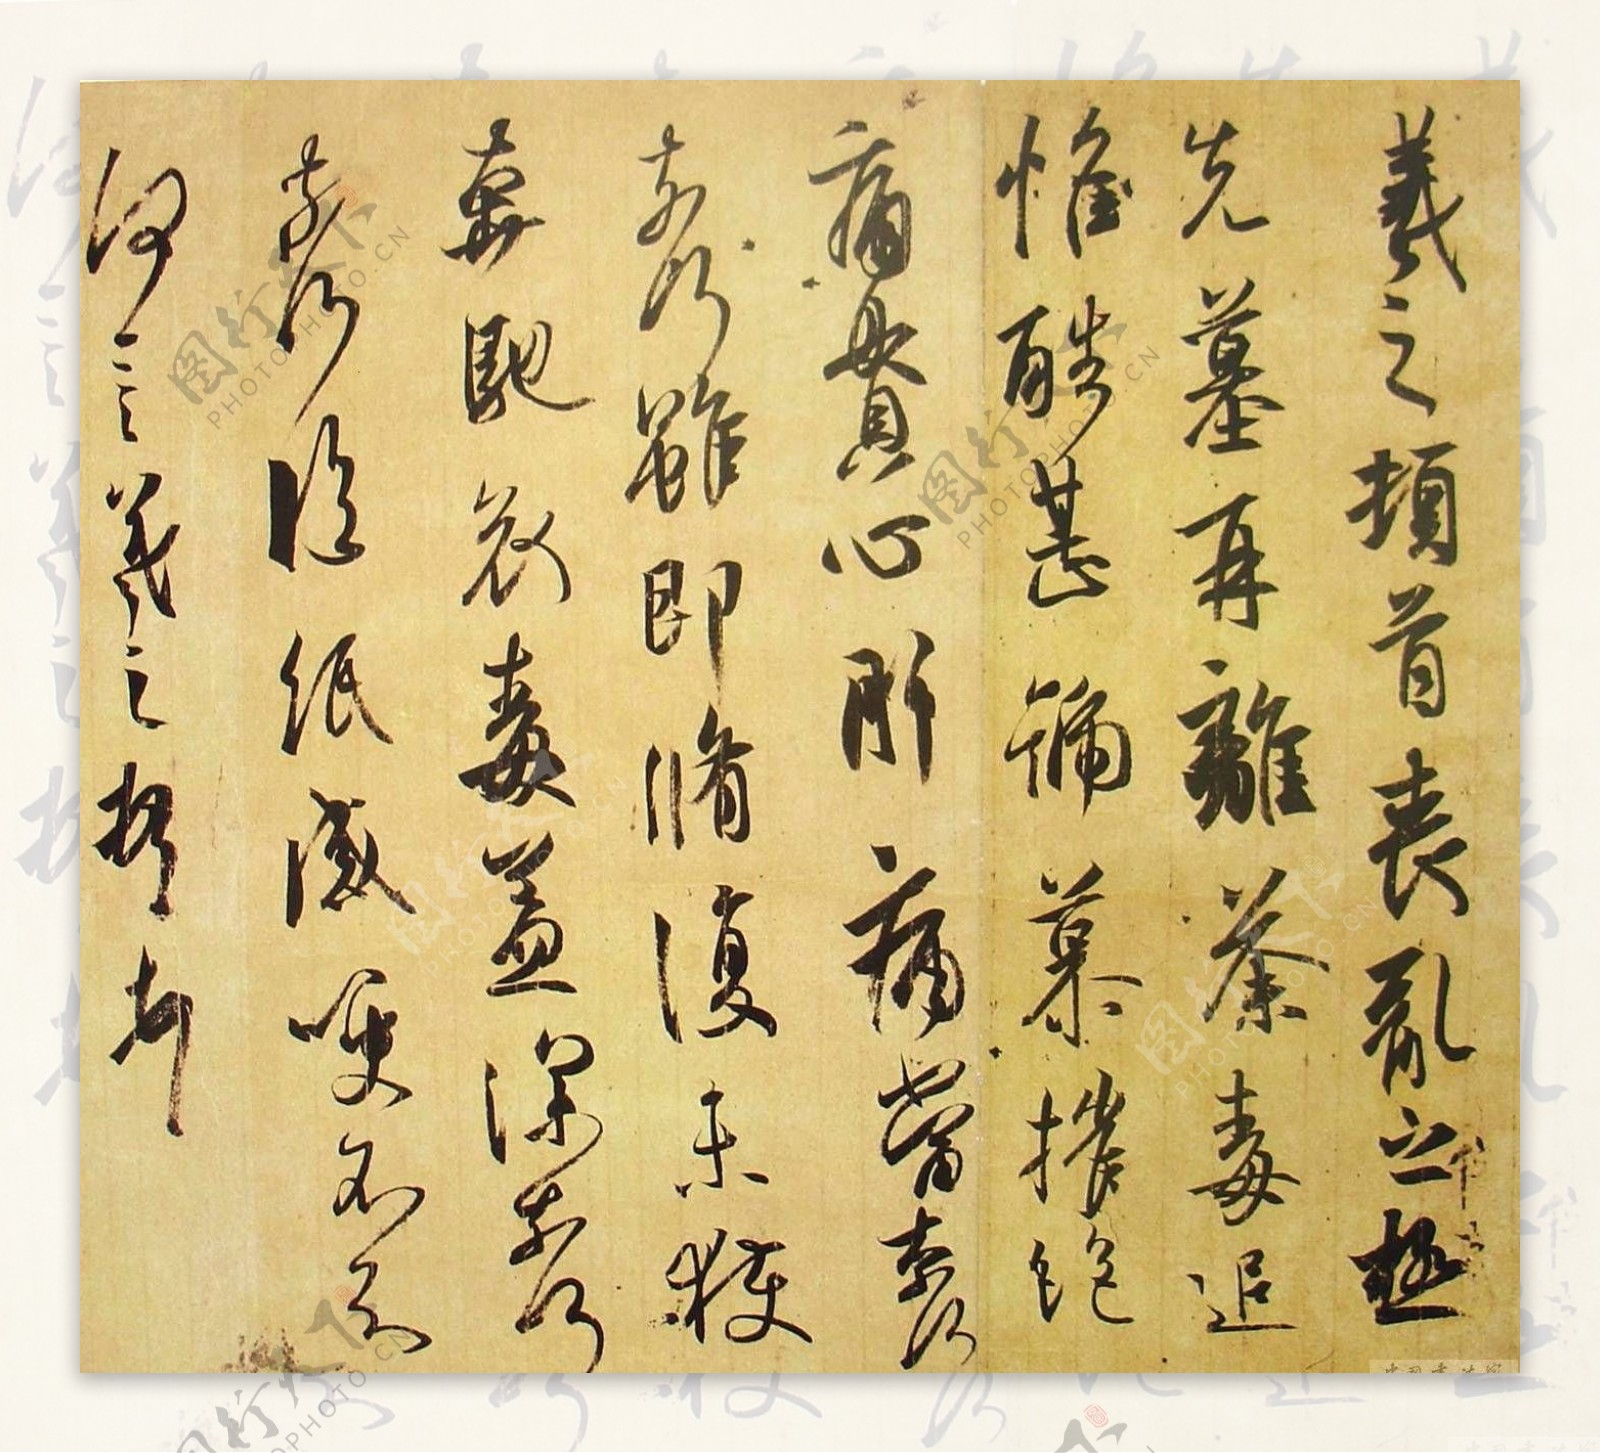 羲之頓首喪亂之極
先墓再離荼毒追
惟酷甚號慕摧絕
痛貫心肝痛當奈何
奈何雖即脩復未獲
奔馳哀毒益深奈何
奈何臨紙感哽不知
何言羲之頓首頓首
图行天下
PHOTOPHOTO.CN